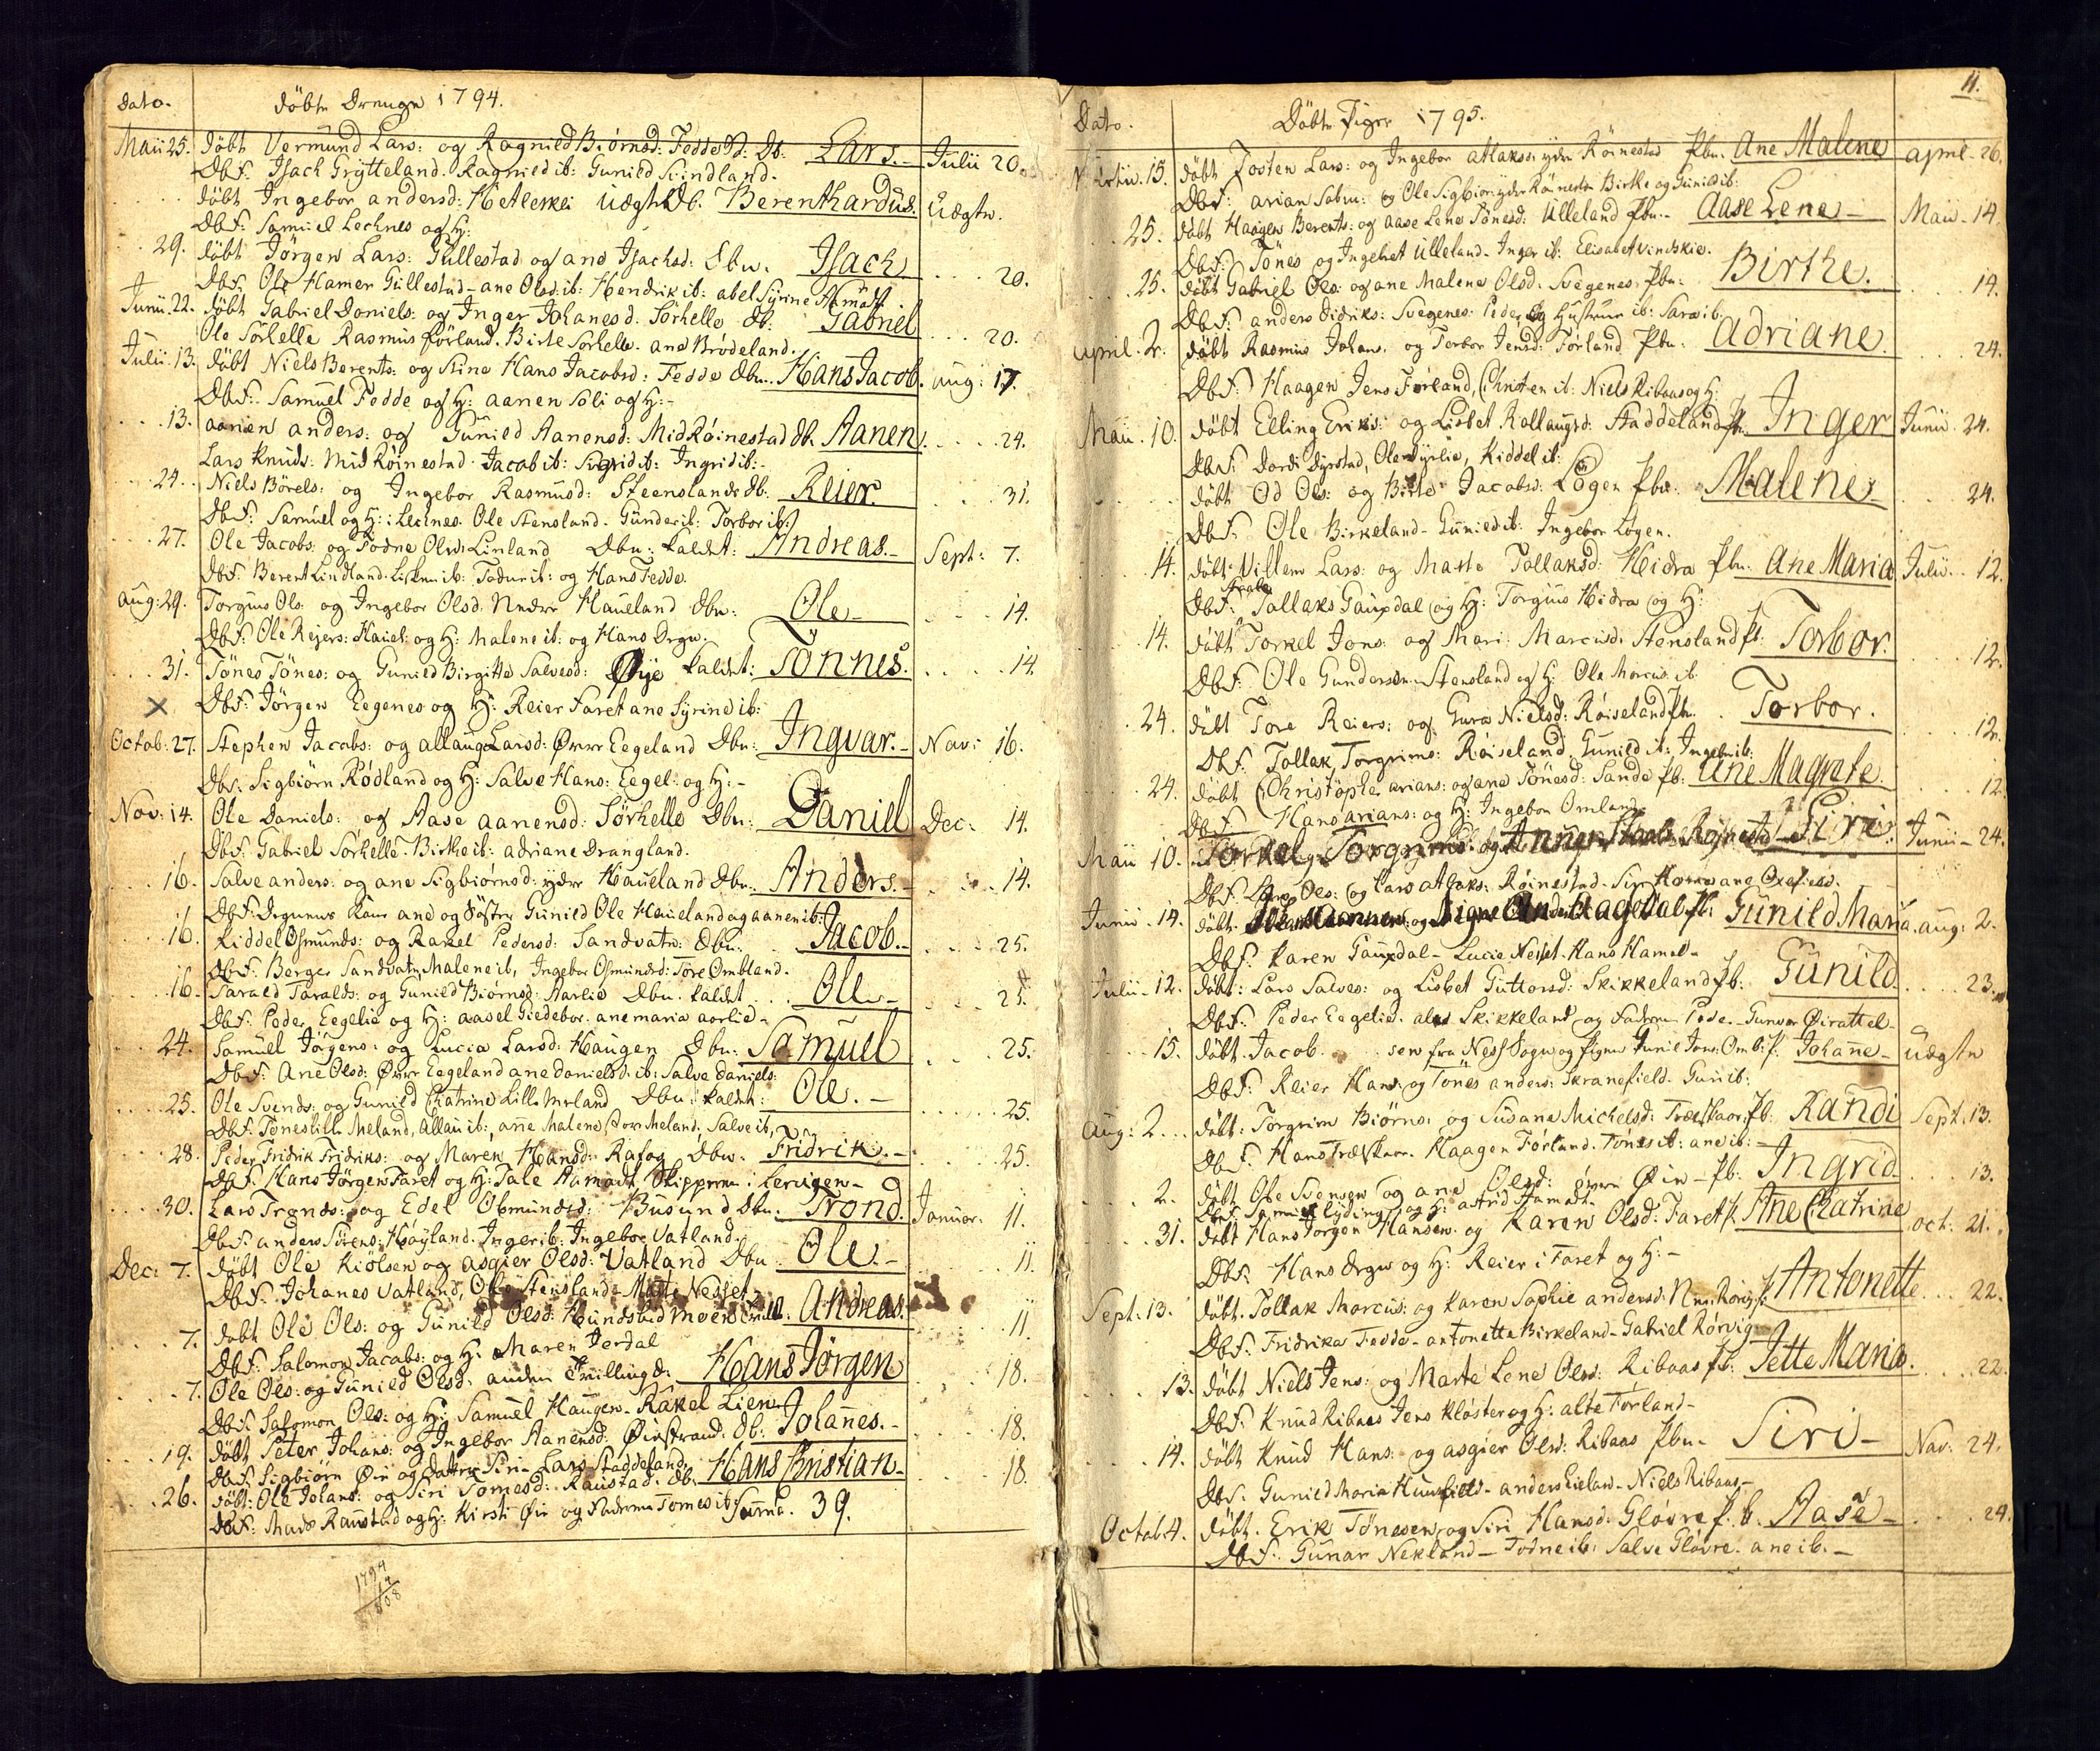 Dato. Döbte Drenge 1794.
Maii 25. döbt Vermund Lars: og Ragnild Biörnsd: Fedde Db: Lars. Julii 20.
DbF. Isach Grÿtteland. Ragnild ib: Gunild
döbt Ingebor andersd: Uægte Db. Berenthardus. Uægte.
DbF: Samuel Lechnes og H:
29. döbt Jörgen Lars: Gullestad og ane Isachsd: Dbn. Isach 20.
DbF. Ole Hamer Gullestad - ane Olsd: ib: Hendrik ib: abel Syrine
Junii 22. döbt Gabriel Daniels: og Inger Johanesd: Sörhelle Db: Gabriel 20.
Ole Sörhelle Rasmus Förland. Birte Sörhelle. ane Brödeland.
Julii 13. döbt Niels Berents: og Stine Hans Jacobsd: Fedde Dbn. Hans Jacob. aug: 17.
DbF. Samuel Fedde og H: aanen Soli og H: -
13. aanen anders: og Gunild Aanensd: Mid Röinestad Db. Aanen. 24.
Lars Knuds: Mid Röinestad Jacob ib: Sigrid ib: Ingrid ib: -
24. Niels Börels: og Ingebor Rasmusd: Steensland Db: Reier. 31.
DbF: Samuel og H: Lechnes. Ole Stensland. Gunder ib: Torbor ib:
27. Ole Jacobs: og Todne Olsd: Linland Dbn: kaldet: Andreas. Sept: 7.
DbF. Berent Lindland. ib: Todne ib: og Hans Fedde.
Aug: 29. Torgius Ols: og Ingebor Olsd. Nedre Haueland Dbn: Ole 14.
DbF: Ole Rejers: Hauel: og H: Malene ib: og Hans
31. Tönes Tönes: og Gunild Birgitte Salvesd: Öÿe kaldet: Tönnes. 14.
DbF: Jörgen Eegenes og H: Reier Faret ane Syrine ib:
Octob: 27. Stephen Jacobs: og allaug Larsd: Övre Eegeland Dbn: Ingvar. Nov: 16.
Dbf. Sigbiörn Rödland og H: Salve Hans: Eegel: og H: -
Nov: 14. Ole Daniels: og Aase aanensd: Sörhelle Dbn: Daniel Dec: 14.
DbF: Gabriel Sörhelle - Birthe ib: adriane Drangland.
16. Salve anders: og ane Sigbiörnsd: ydre Haueland Dbn. Anders. 14.
DbF. ane og Söster Gunild Ole Haueland og aanen ib:
16. Kiddel Osmunds: og Rakel Pedersd: Sandvatn: Dbn: Jacob. 25.
DbF: Berge Sandvatn Malene ib, Ingebor Osmundsd: Tore Ombland.
16. Tarald Taralds: og Gunild Biörnsd: Aarlie Dbn. kaldet Ole 25.
DbF. Peder Eegelie og H: aasel Giedebor. ane maria aarlie -
24. Samuel Jörgens: og Lucia Larsd: Haugen Dbn: Samuel 25.
DbF. Ane Olsd: Övre Eegeland ane Danielsd: ib: Salve Daniels:
25. Ole Svends: og Gunild Chatrine Lille Meland Dbn. kaldet: Ole. - 25.
DbF: Tönes lille Meland, Allau ib:, anne Malene Store Meland, Salve ib,
28. Peder Fridrik Fridriks: og Maren Hansd: Rafog Dbn. Fridrik. - 25.
DbF. Hans Jörgen Faret og H: Tale Aamodt, Skipperen i Lervigen -
30. Lars Tronds: og Edel Osmundsd: Busund Dbn. Trond. Januar. 11.
DbF. anders Sörens: Höÿland. Inger ib: Ingebor Vatland.
Dec: 7. döbt Ole Kiölsen og asgier Olsd: Vatland Dbn Ole. - 11.
DbF. Johanes Vatland, Ole Stensland - Marte Nesset -
7. döbt Ole Ols: og Gunild Olsd: Andreas. 11
DbF: Salomon Jacobs: og H: Maren Jerdal
7. Ole Ols: og Gunild Olsd. anden Tvilling d: Hans Jörgen 18.
DbF. Salomon Ols: og H: Samuel Haugen - Rakel Lien
19. döbt Peter Johans: og Ingebor Aanensd: Öiestrand. Db: Johanes. - 18.
DbF. Sigbiörn Öie og Datter Siri - Lars Staddeland
26. döbt: Ole Johans: og Siri Tomesd: Raustad. Db. Hans Kristian - 18
DbF: Mads Raustad og H: Kirsti Öie og Tomes ib: Suma. 39.
1794
14
808
11.
Dato. Döbte Piger 1795.
Martii. 15. döbt Josten Lars: og Ingebor atlaksd: ydre Röinestad Pbn: Ane Malene april - 26.
DbF: arian Salm: og Ole Sigbiör: ydre Röinestad Birthe og Gunild ib:
25. döbt Haagen Berents: og aase Lene Tönesd: Ulleland Pbn - Aase Lene - Maii - 14.
DbF: Tönes og Ingebret Ulleland - Inger ib: Elisabet Vindskie.
25. döbt Gabriel Ols: og ane Malene Olsd. Svegenes Pbn: Birthe. 14.
DbF: anders Didriks: Svegenes: Peder og Hustrue ib: Sara ib.
April. 2. döbt Rasmus Johans. og Torbor Jensd: Förland Pbn. Adriane. 24.
DbF: Haagen Jens Förland, Christen ib: Niels Ribaas og H:
Maii. 10. döbt Elling Eriks: og Lisbet Rollaugsd: Staddeland Pb: Inger Junii. 24.
DbF. Dordi Dyrstad, Ole Dyrlie, Kiddel ib:
döbt Od Ols: og Birte Jacobsd: Lögen Pbn. Malene 24.
DbF. Ole Birkeland - Gunild ib: Ingebor Logen.
14. döbt Villem Lars: og Marte Tollaksd: Hidra Pbn: Ane Maria Julii - 12.
DbF: Tollaks Gauxdal og H: Torgius Hidra og H:
14. döbt Torkel Jons: og Mari Marcusd: Stensland P: Torbor. 12.
DbF. Ole Gundersen: Stensland og H: Ole Marcus: ib.
24. döbt Tore Reiers: og Guro Nielsd: Röiseland Pbn. Torbor. 12.
DbF. Tollak Torgrims: Röiseland. Gunild ib: Ingebor ib:
24. döbt Christopher arians: og ane Tönesd: Sande Pb: Ane Magrete. 12
DbF Hans arians: og H: Ingebor Omland
Maii 10. Torkel Torgrims: og Röinestad Siri. Junii - 24.
DbF. Ols: og Lars atlaks: Röinestad - ane
Junii. 14. döbt Hagedal Pb: Gunild Maria. aug: 2.
DbF. Karen Gauxdal - Lucie Nesset - Hans Hamel -
Julii - 12. döbt: Lars Salves: og Lisbet Guttorsd: Skikkeland Pb: Gunild. 23.
DbF. Peder Eegelie. Skikkeland og Pede. Gunvor Öirattel -
15. döbt. Jacob. sen fra Ness Sogn og Pigen Gunil Jons: Omb: P. Johane - Uægte
DbF. Reier Hans: og Tönes anders: Tranefield. Guri ib:
Aug: 2. döbt: Torgrim Biörns: og Sudane Michelsd: Trælskaar: Pb: Randi Sept: 13.
DbF. Hans Trælskaar. Haagen Förland. Tönes ib: ane ib: -
2. döbt Ole Svensen og ane Olsd: övre Öie - Pb: Ingrid. 13.
DbF. Samuel og H: astrid Aamodt.
31. döbt Hans Jörgen Hansen og Karen Olsd: Faret P. Ane Chatrine oct: 21.
DbF. Hans og H: Reier i Faret og H: -
Sept: 13. döbt. Tollak Marcus: og Karen Sophie andersd: Rörvig: P: Antonette. 22.
DbF. Fridrika Fedde - antonetta Birkeland - Gabriel Rörvig
13. döbt Niels Jens: og Marte Lene Olsd: Ribaas Pb: Jette Maria. 22.
DbF. Knud Ribaas Jens Kloster og H: alte Förland -
14. döbt Knud Hans: og asgier Olsd: Ribaas Pbn - Siri - Nov. 24.
DbF. Gunild Maria - anders Eieland - Niels Ribaas -
Octob 4. döbt. Erik Tönesen og Siri Hansd. Glövre P. b. Aase - 24.
DbF. Gunar Nekland - Todne ib: Salve Glövre. ane ib. -